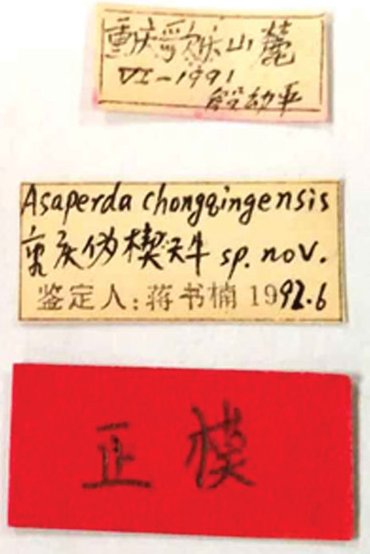 重庆歌乐山麓
VI-1991
殷幼平
Asaperda chongqingensis
重庆伪楔天牛 sp. nov.
鉴定人:蒋书楠 1992.6
正模